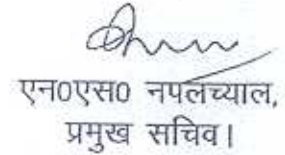 एन0एस0 नपलच्याल,
प्रमुख सचिव।